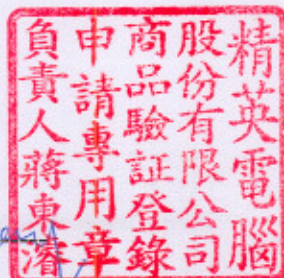 精英電腦
股份有限公司
商品驗証登錄
申請專用章
負責人蔣東濬